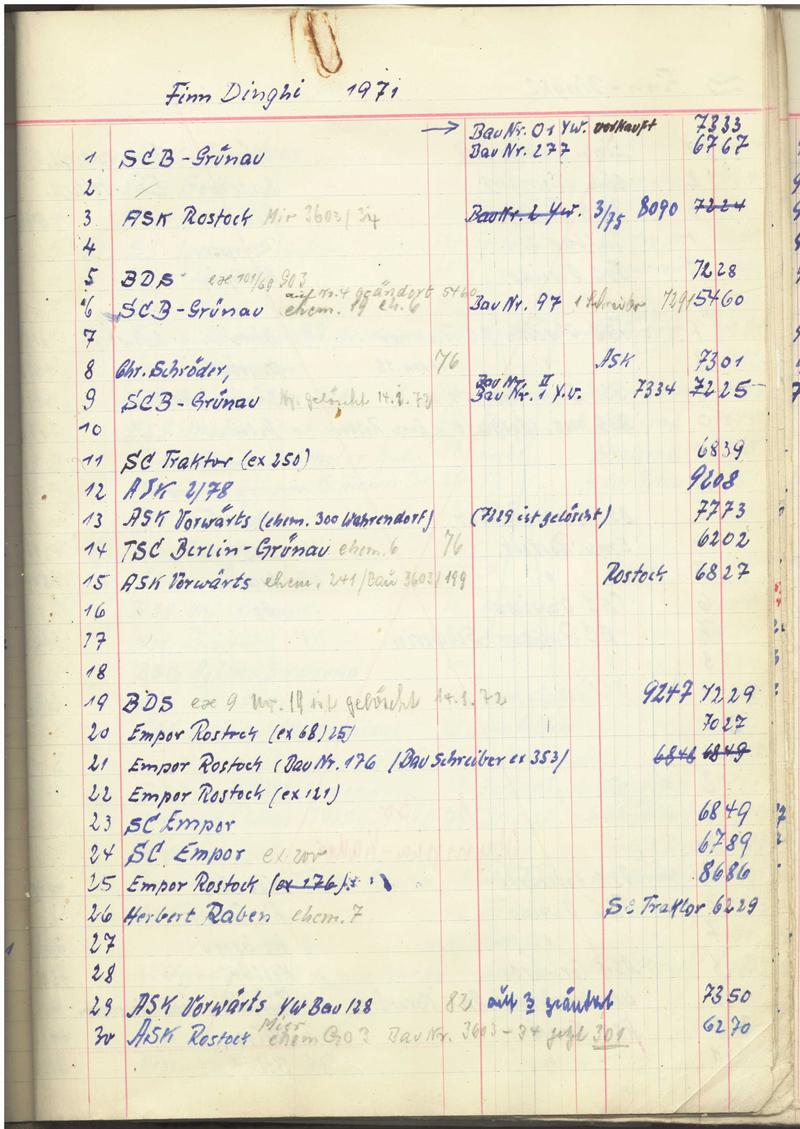 Finn Dinghi 1971
→ Bau Nr. 01 Yw. verkauft 7333
1 SCB-Grünau Bau Nr. 277 6767
2
3 ASK Rostock Mir 3603/34 Bau Nr. 2 Yw. 3/75 8090 7224
4
5 BDS ex 101/69 GO3 7228
auf Nr. 4 geändert 5460
6 SCB-Grünau ehem. 19 Bau Nr. 97 1 Schreiber 7291 5460
7
8 Chr. Schröder, 76 ASK 7301
Bau Nr. II
9 SCB-Grünau Nr. gelöscht 14.1.72 Bau Nr. 1 7334 7225
10
11 SC Traktor (ex 250) 6839
12 ASK 2/78 9208
13 ASK Vorwärts (ehem. 300 Wahrendorf) (7229 ist gelöscht) 7773
14 TSC Berlin-Grünau ehem. 6 76 6202
15 ASK Vorwärts ehem. 241/Bau 3603/199 Rostock 6827
16
17
18
19 BDS ex 9 Nr. 19 ist gelöscht 14.1.72 9247 7229
20 Empor Rostock (ex 68) 25) 7027
21 Empor Rostock (Bau Nr. 176 /Bau Schreiber ex 353/ 6848 6849
22 Empor Rostock (ex 121)
23 SC Empor 6849
24 SC Empor ex 200 6789
25 Empor Rostock (ex 176) 8686
26 Herbert Raben ehem. 7 SC Traktor 6229
27
28
29 ASK Vorwärts Yw Bau 128 82 auf 3 geändert 7350
30 ASK Rostock ehem GO3 Bau Nr. 3603-34 jetzt 301 6270